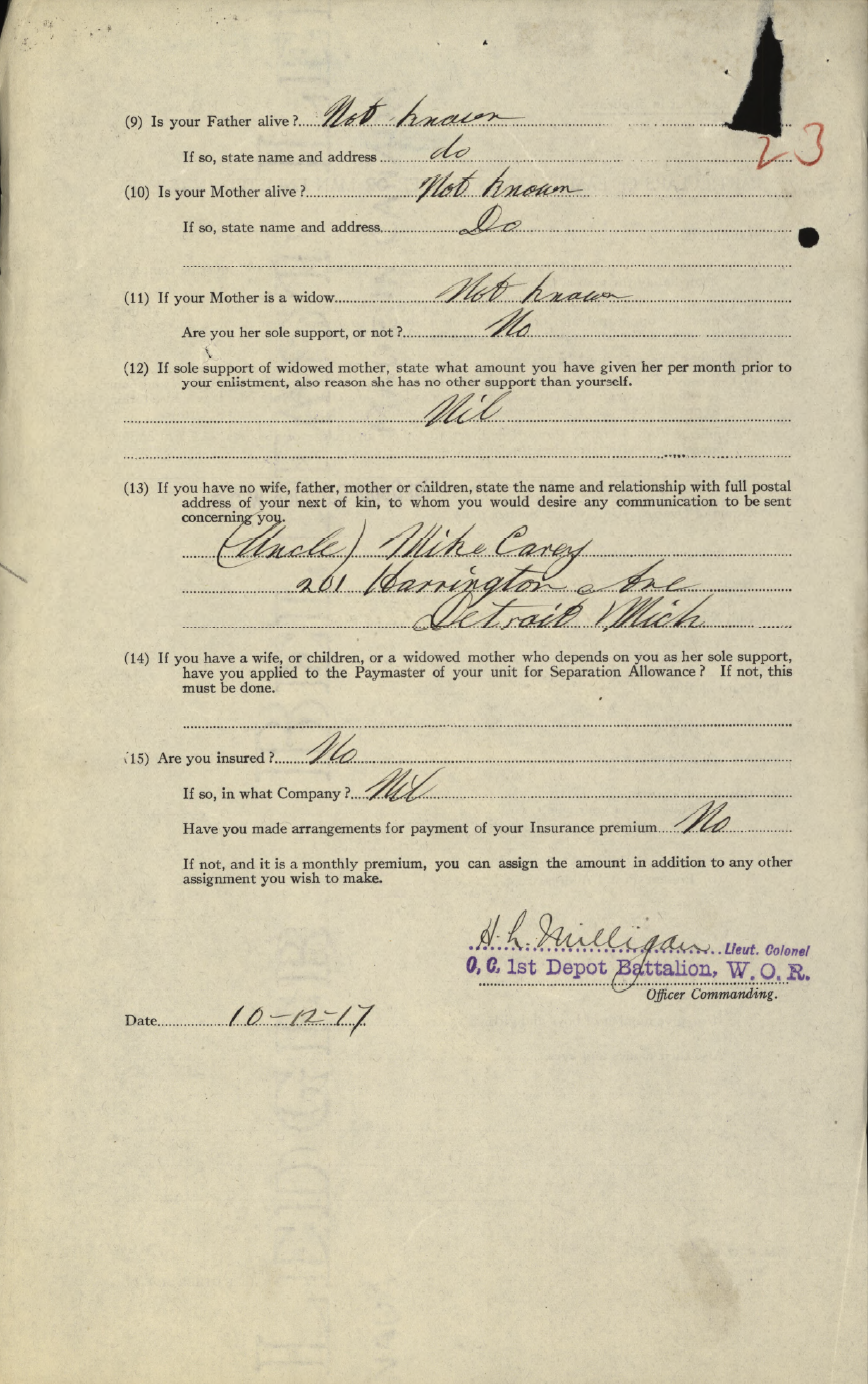 (9) Is your Father alive? Not known
23
If so, state name and address do
(10) Is your Mother alive? Not known
If so, state name and address Do
(11) If your Mother is a widow Not known
Are you her sole support, or not? No
(12) If sole support of widowed mother, state what amount you have given her per month prior to
your enlistment, also reason she has no other support than yourself.
Nil
(13) If you have no wife, father, mother or children, state the name and relationship with full postal
address of your next of kin, to whom you would desire any communication to be sent
concerning you.
(Uncle) Mike Carey
201 Harrington Ave
Detroit Mich
(14) If you have a wife, or children, or a widowed mother who depends on you as her sole support,
have you applied to the Paymaster of your unit for Separation Allowance? If not, this
must be done.
(15) Are you insured? No
If so, in what Company? Nil
Have you made arrangements for payment of your Insurance premium No
If not, and it is a monthly premium, you can assign the amount in addition to any other
assignment you wish to make.
H. L. Milligan Lieut. Colonel
O. C. 1st Depot Battalion, W. O. R.
Officer Commanding.
Date 10-12-17